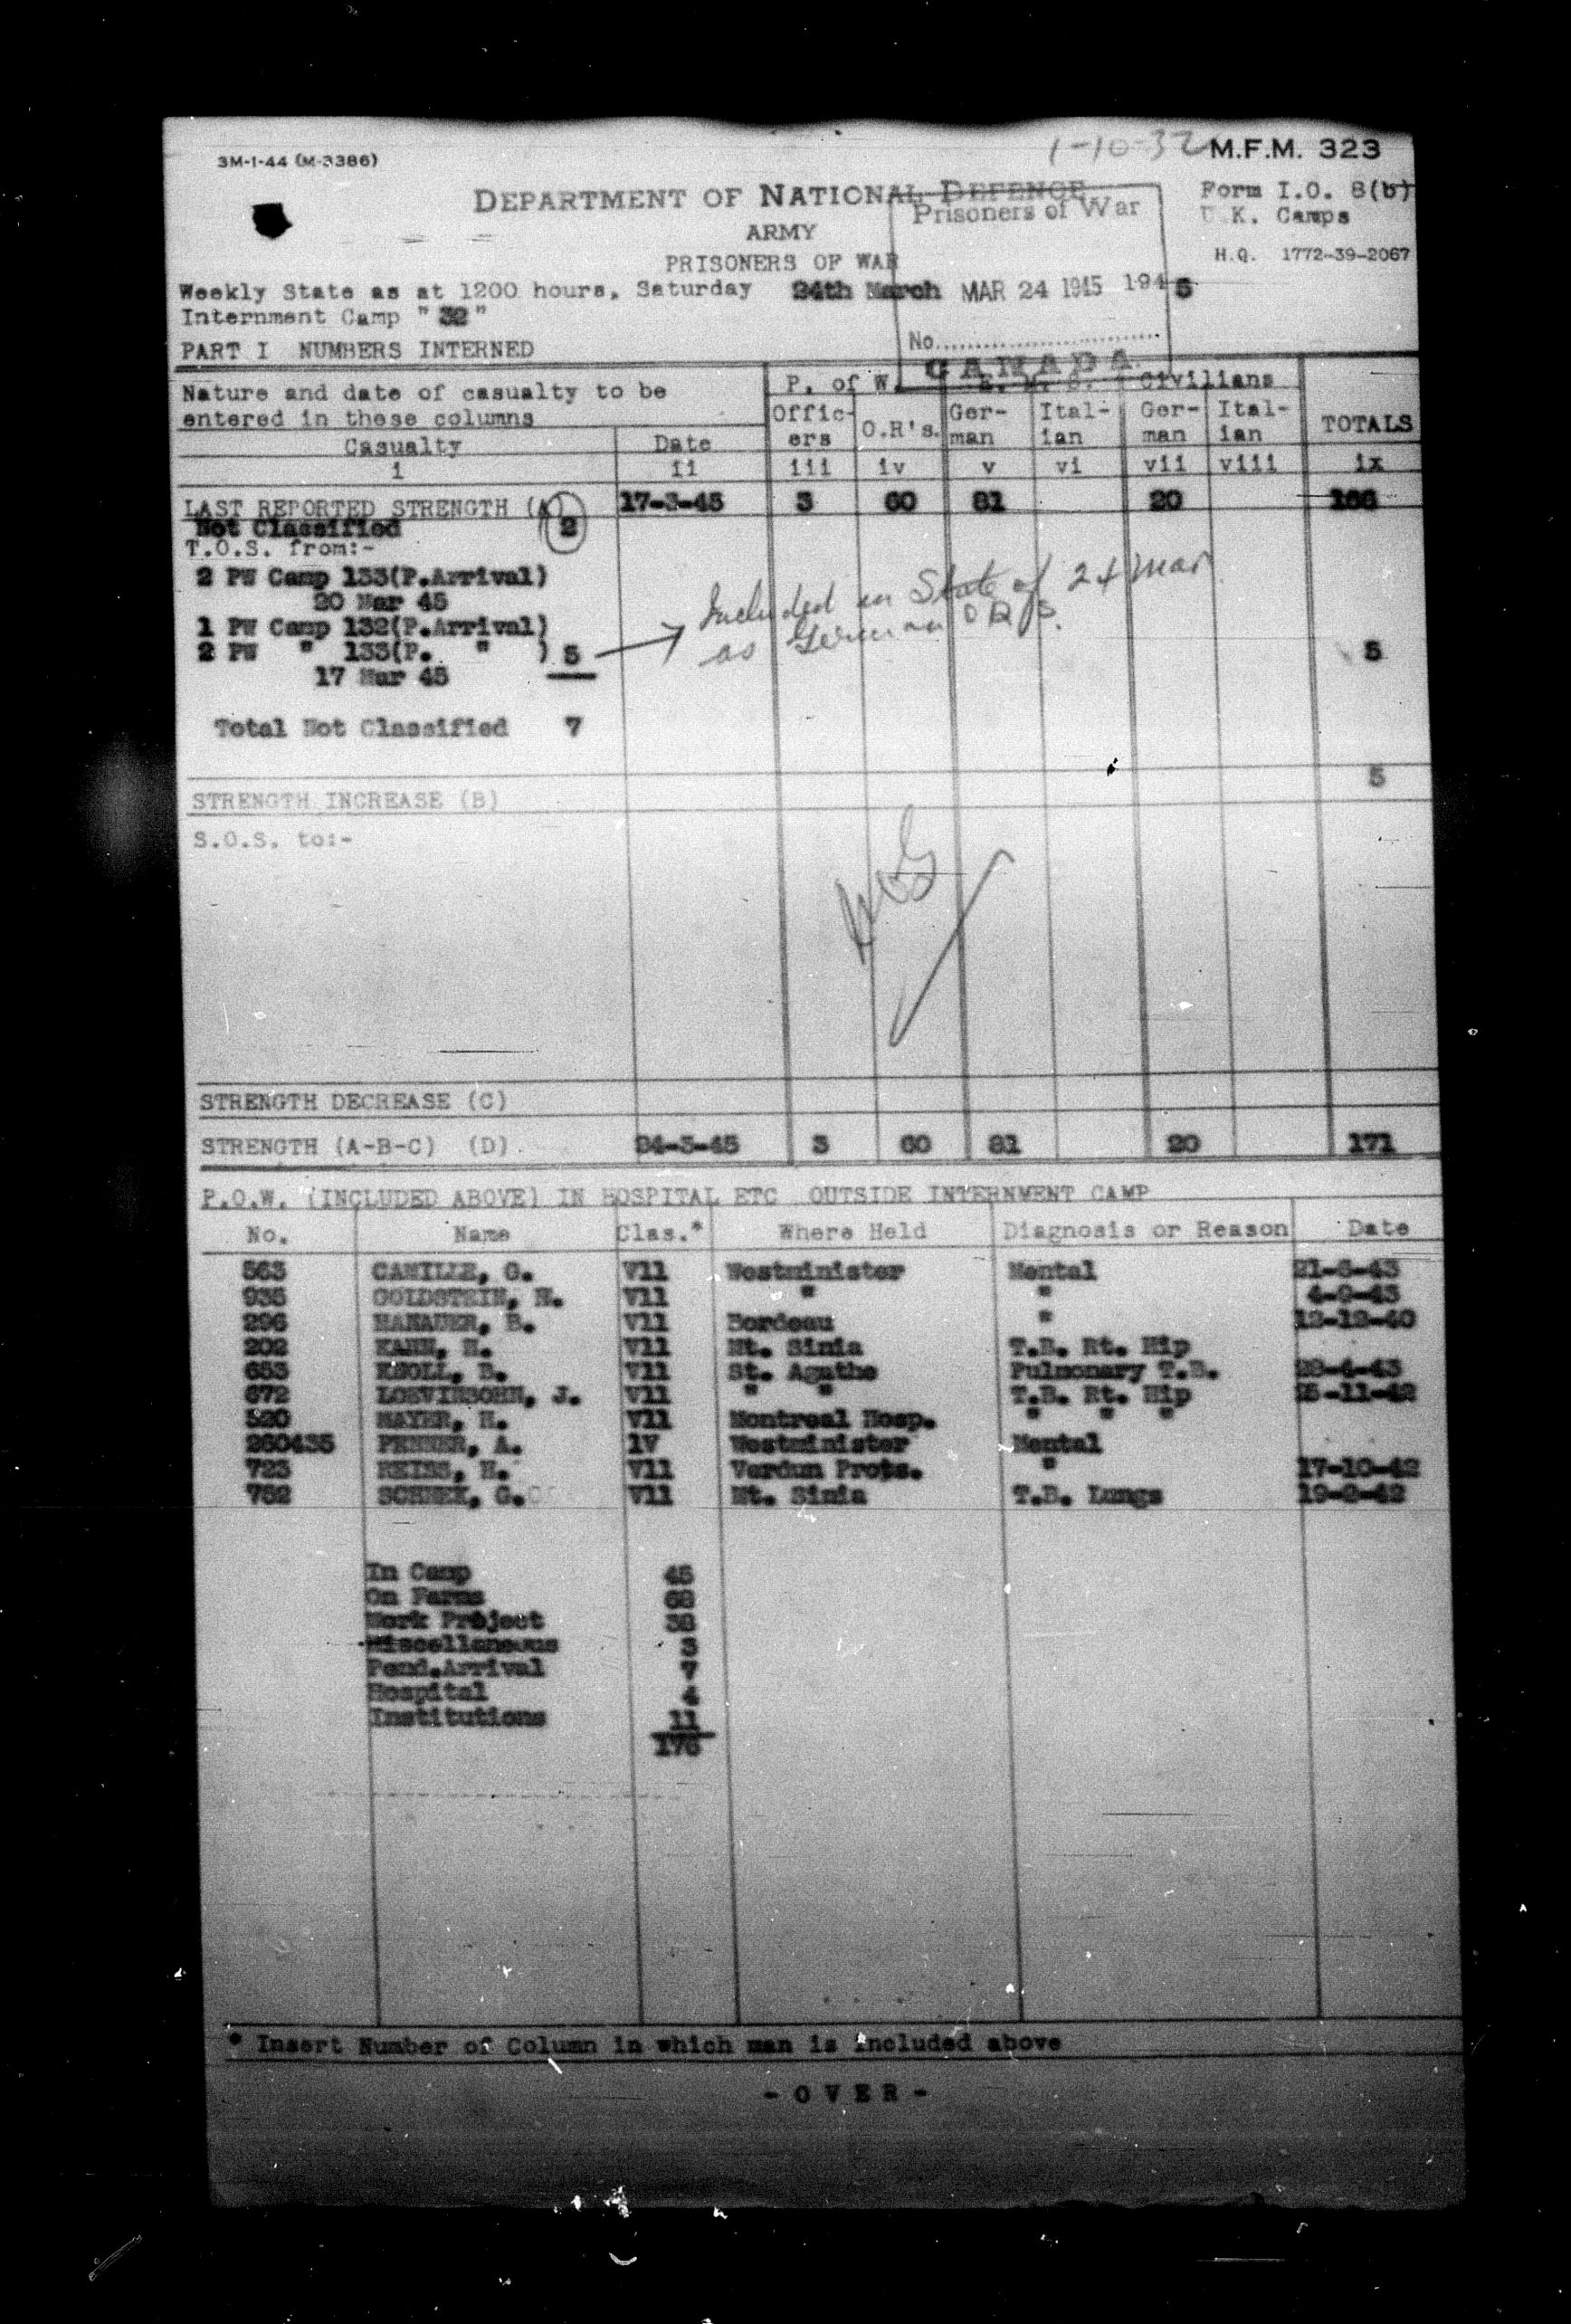 3M-1-44 (M-3386)
1-10-32 M.F.M. 323
DEPARTMENT OF NATIONAL DEFENCE
Form I.O. 8(b)
Prisoners of War
U.K. Camps
ARMY
PRISONERS OF WAR
H.Q. 1772-39-2067
Weekly State as at 1200 hours, Saturday 24th March MAR 24 1945 1945
Internment Camp "32"
No.
PART I NUMBERS INTERNED
CANADA
Nature and date of casualty to be entered in these columns
P. of W. E. M. S. Civilians
Offic-ers O.R's. Ger-man Ital-ian Ger-man Ital-ian TOTALS
Casualty Date
i ii iii iv v vi vii viii ix
LAST REPORTED STRENGTH (A) 17-3-45 3 60 81 20 166
Not Classified 2
T.O.S. from:-
2 PW Camp 133(P.Arrival)
20 Mar 45
Included in State of 24 Mar
as German O R's.
1 PW Camp 132(P.Arrival)
2 PW " 133(P. " ) 5 5
17 Mar 45
Total Not Classified 7
5
STRENGTH INCREASE (B)
S.O.S. to:-
STRENGTH DECREASE (C)
STRENGTH (A-B-C) (D) 24-3-45 3 60 81 20 171
P.O.W. (INCLUDED ABOVE) IN HOSPITAL ETC OUTSIDE INTERNMENT CAMP
No. Name Clas.* Where Held Diagnosis or Reason Date
563 CAMILLE, G. V11 Westminister Mental 21-6-43
935 GOLDSTEIN, H. V11 " " 4-9-43
296 HANAUER, B. V11 Bordeau " 12-12-40
202 KAHN, H. V11 Mt. Sinia T.B. Rt. Hip
653 KNOLL, B. V11 St. Agathe Pulmonary T.B. 29-4-43
672 LOEVINSOHN, J. V11 " " T.B. Rt. Hip 25-11-42
520 MAYER, H. V11 Montreal Hosp. " " "
260435 PENNER, A. 1V Westminister Mental
723 REISS, H. V11 Verdun Prots. " 17-10-42
752 SCHNEK, G. V11 Mt. Sinia T.B. Lungs 19-2-42
In Camp 45
On Farms 68
Work Project 38
Miscellaneous 3
Pend.Arrival 7
Hospital 4
Institutions 11
176
* Insert Number of Column in which man is included above
- O V E R -